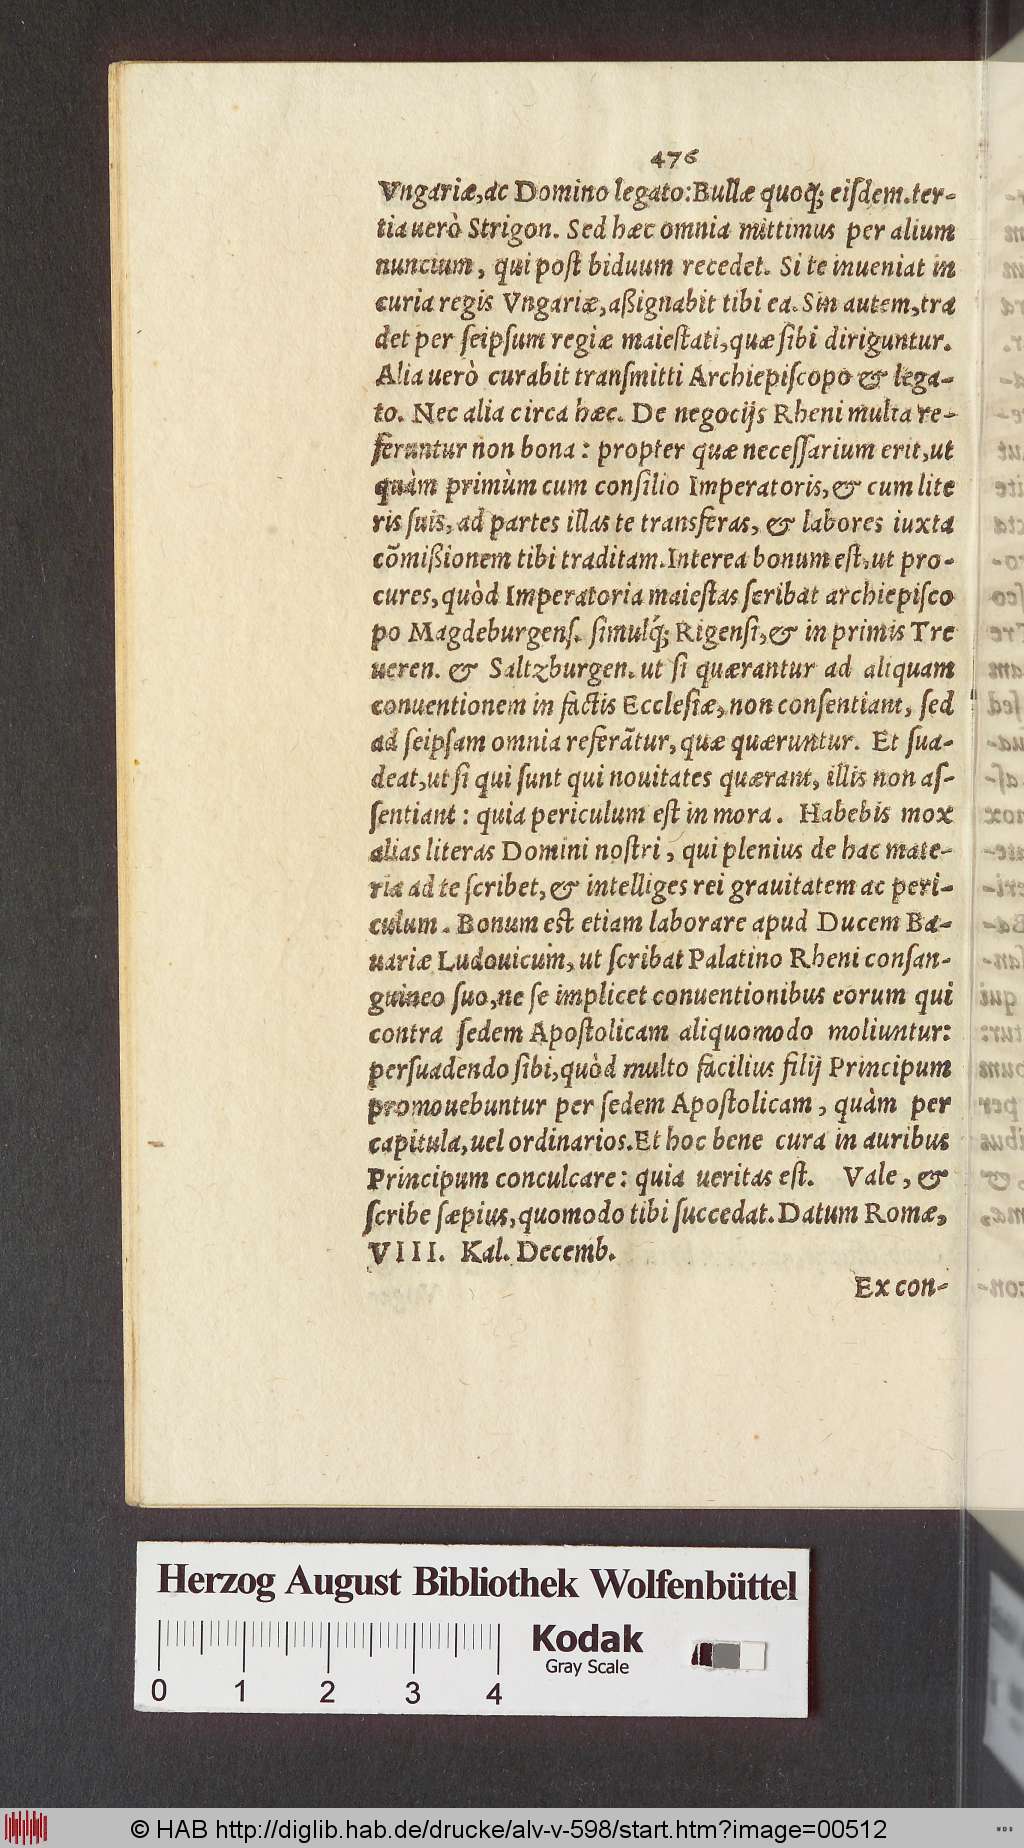 476
Vngariæ, ac Domino legato: Bullæ quoq; eiſdem. ter-
tia uerò Strigon. Sed hæc omnia mittimus per alium
nuncium, qui poſt biduum recedet. Si te inueniat in
curia regis Vngariæ, aßignabit tibi ea. Sin autem, tra
det per ſeipſum regiæ maieſtati, quæ ſibi diriguntur.
Alia uerò curabit tranſmitti Archiepiſcopo & lega-
to. Nec alia circa hæc. De negocijs Rheni multa re-
feruntur non bona: propter quæ neceſſarium erit, ut
quàm primùm cum conſilio Imperatoris, & cum lite
ris ſuis, ad partes illas te transferas, & labores iuxta
cõmißionem tibi traditam. Interea bonum eſt, ut pro-
cures, quòd Imperatoria maieſtas ſcribat archiepiſco
po Magdeburgenſ. ſimulq́; Rigenſi, & in primis Tre
ueren. & Saltzburgen. ut ſi quærantur ad aliquam
conuentionem in factis Eccleſiæ, non conſentiant, ſed
ad ſeipſam omnia referãtur, quæ quæruntur. Et ſua-
deat, ut ſi qui ſunt qui nouitates quærant, illis non aſ-
ſentiant: quia periculum eſt in mora. Habebis mox
alias literas Domini noſtri, qui plenius de hac mate-
ria ad te ſcribet, & intelliges rei grauitatem ac peri-
culum. Bonum eſt etiam laborare apud Ducem Ba-
uariæ Ludouicum, ut ſcribat Palatino Rheni conſan-
guineo ſuo, ne ſe implicet conuentionibus eorum qui
contra ſedem Apoſtolicam aliquomodo moliuntur:
perſuadendo ſibi, quòd multo facilius filij Principum
promouebuntur per ſedem Apoſtolicam, quàm per
capitula, uel ordinarios. Et hoc bene cura in auribus
Principum conculcare: quia ueritas eſt. Vale, &
ſcribe ſæpius, quomodo tibi ſuccedat. Datum Romæ,
VIII. Kal. Decemb.
Ex con-
Herzog August Bibliothek Wolfenbüttel
Kodak
Gray Scale
0 1 2 3 4
© HAB http://diglib.hab.de/drucke/alv-v-598/start.htm?image=00512